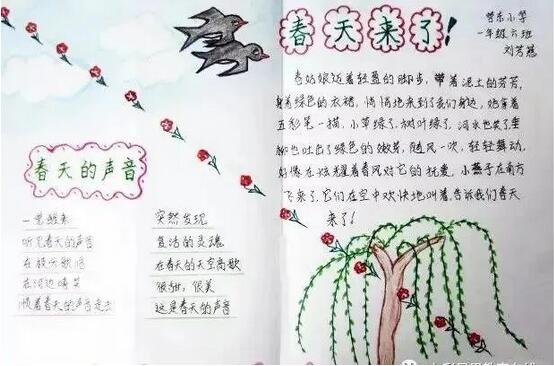 春天的声音
一觉醒来
听见春天的声音
在放沃歌唱
在河边嬉笑
顺着春天的声音走去
突然发现
复活的灵魂
在春天的天空高歌
很甜，很美
这是春天的声音
春天来了!
管东小学
一年级六班
刘芳慧
春姑娘迈着轻盈的脚步，带着泥土的芳芳，
身着绿色的衣裙，悄悄地来到了我们身边，她拿着
五彩笔一描，小草绿了，树叶绿了，河水也笑了垂
柳也吐出了绿色的嫩芽，随风一吹，轻轻舞动，
好像在炫耀着春风对它的抚爱，小燕子在南方
飞来了，它们在空中欢快地叫着，告诉我们春天
来了！